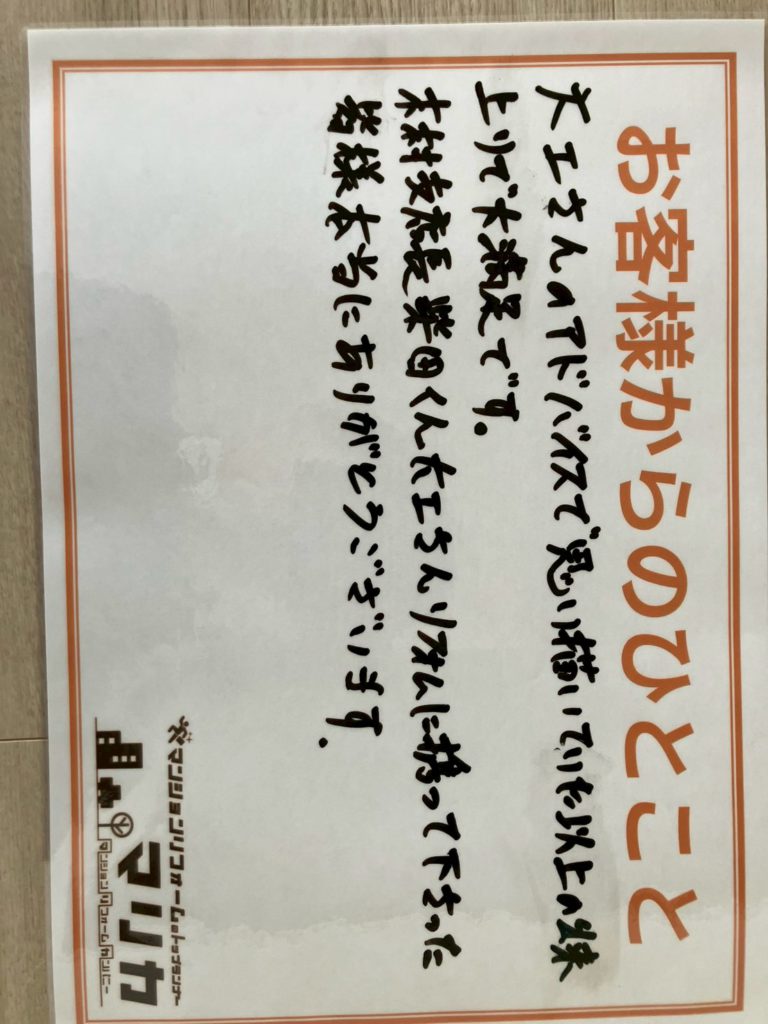 お客様からのひとこと
大工さんのアドバイスで思い描いていた以上の
上りで大満足です。
木村支店長柴田くん大工さんリフォムに携って下さった
皆様本当にありがとうございます。
マンションリフォームのトップランナー
マリカ
マンションリフォームカンパニー